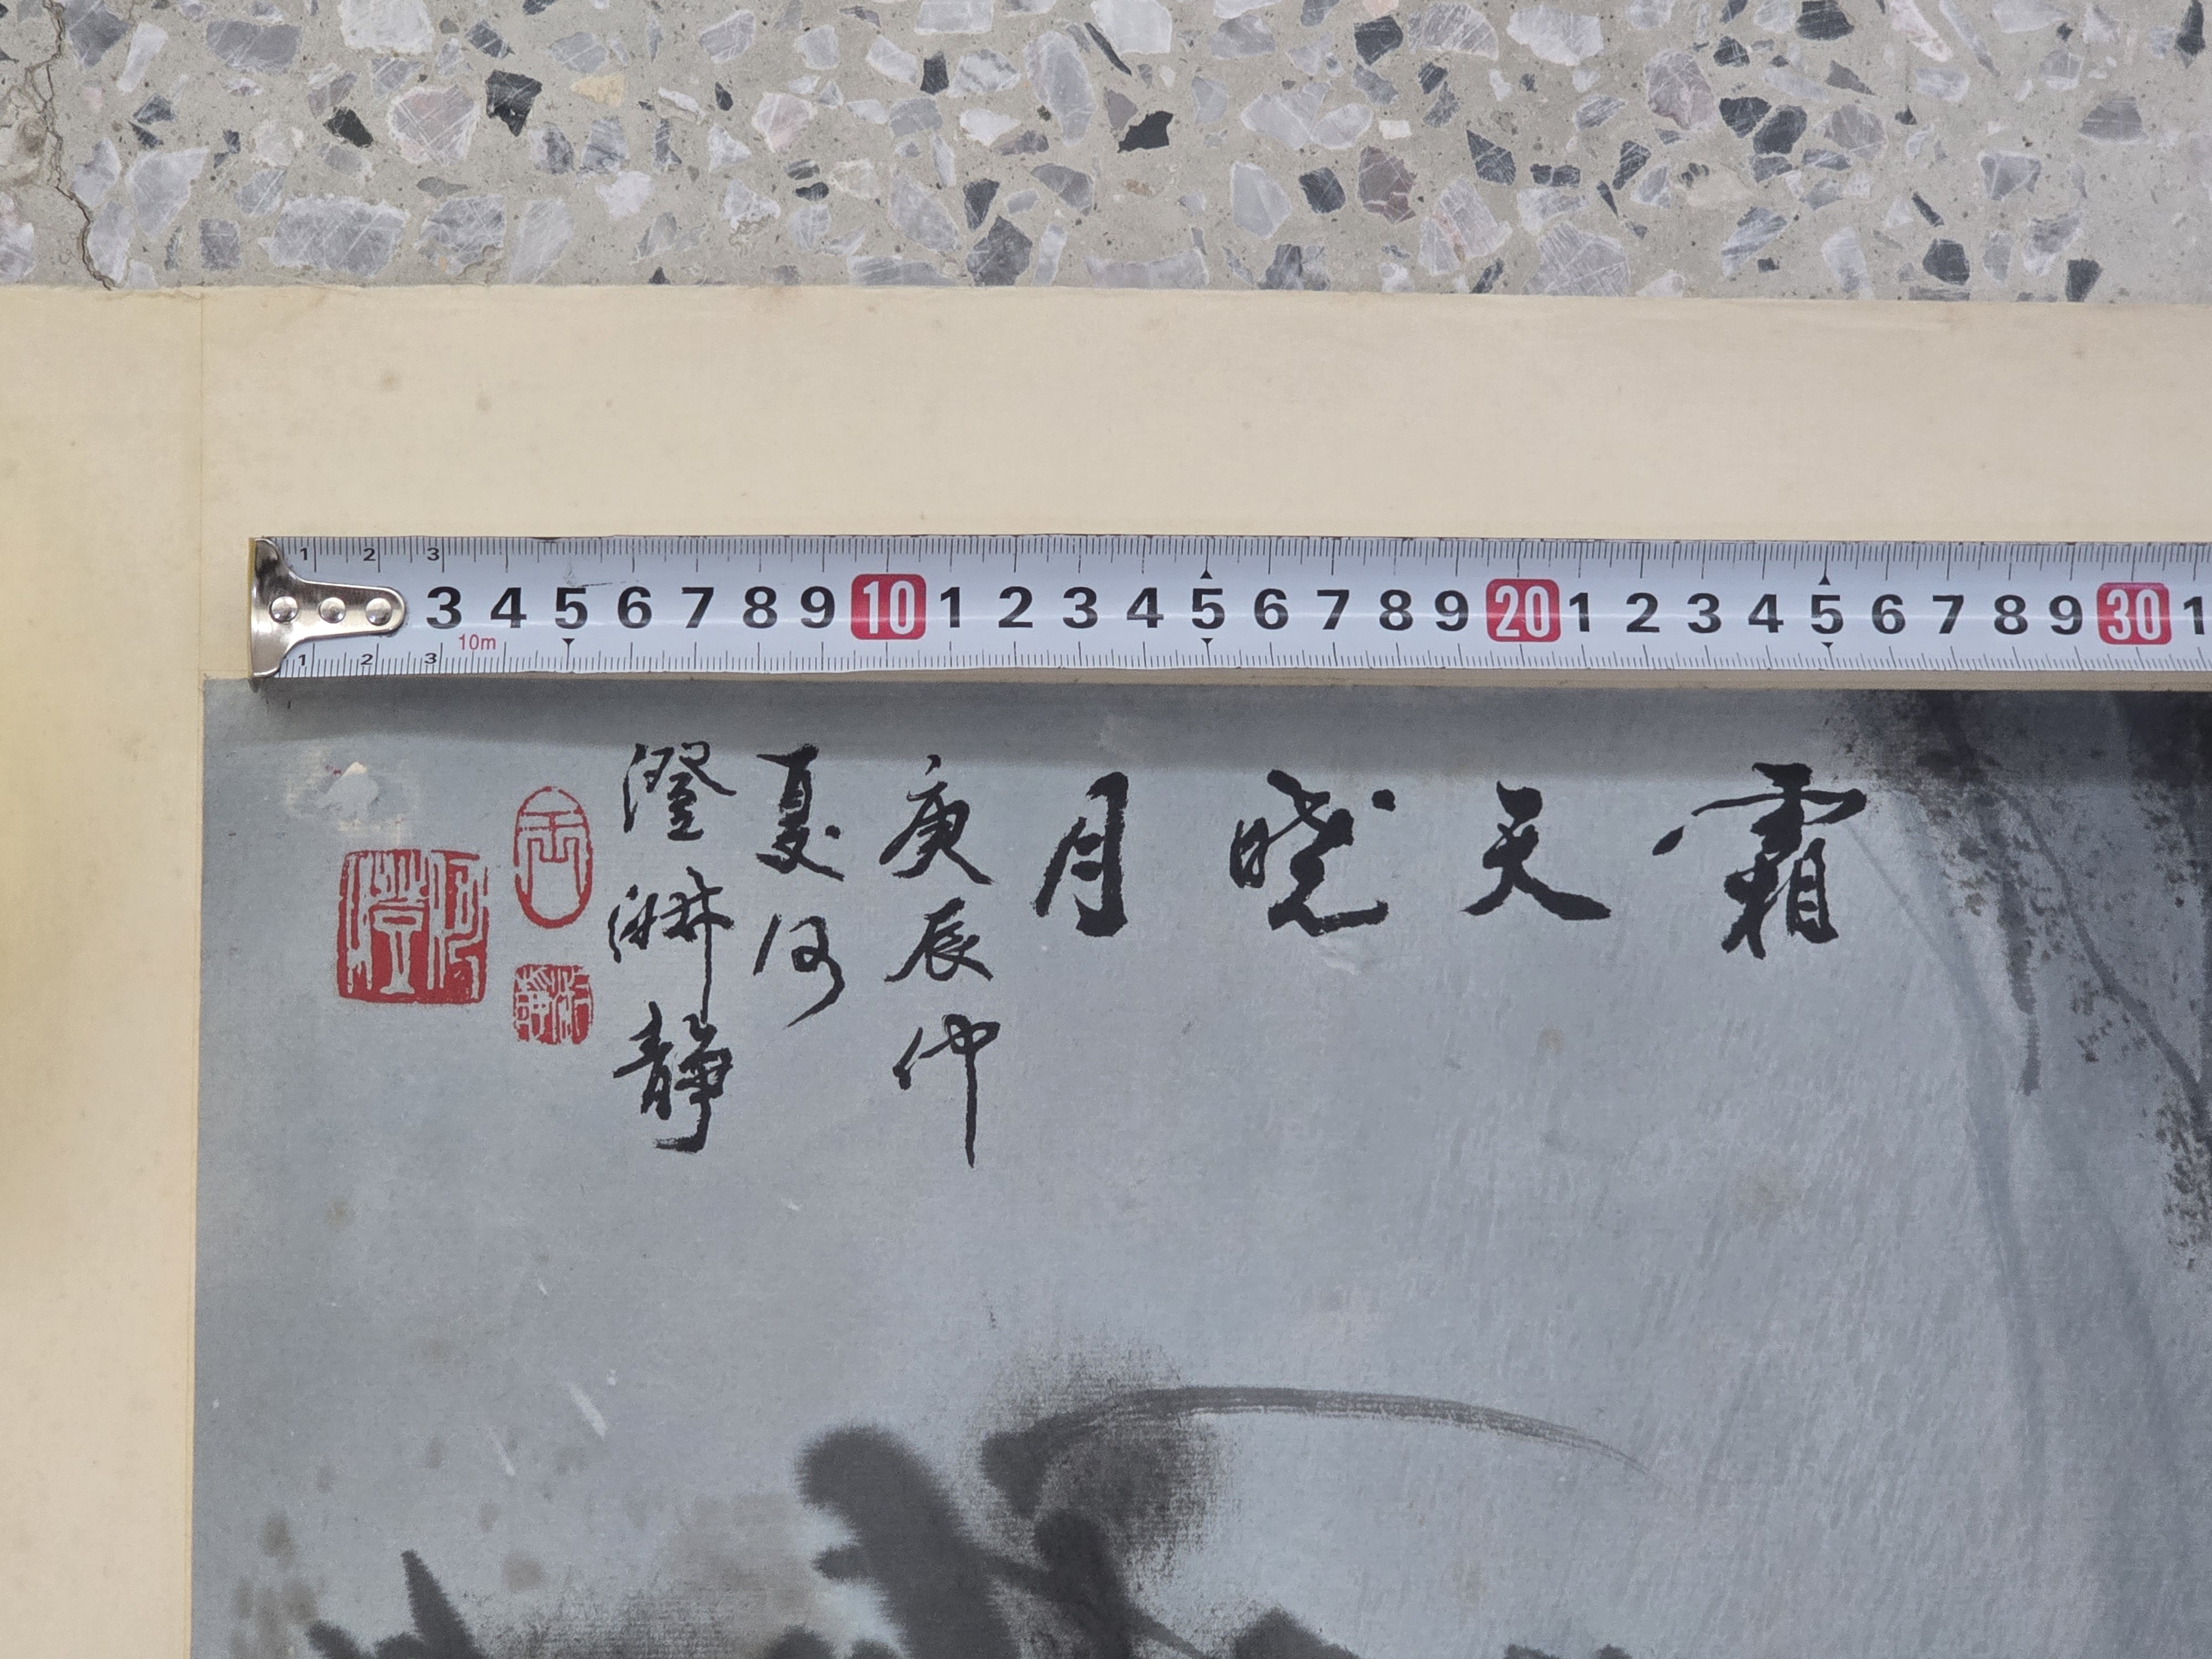 1 2 3
3 4 5 6 7 8 9 10 1 2 3 4 5 6 7 8 9 20 1 2 3 4 5 6 7 8 9 30 1
10m
1 2 3
霜天晓月
庚辰仲
夏何
澄靜